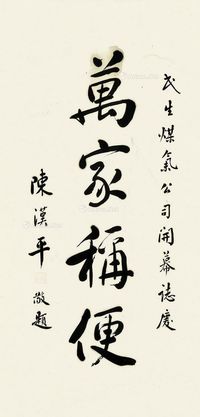 民生煤氣公司開幕誌慶
萬家稱便
陳漢平
敬題